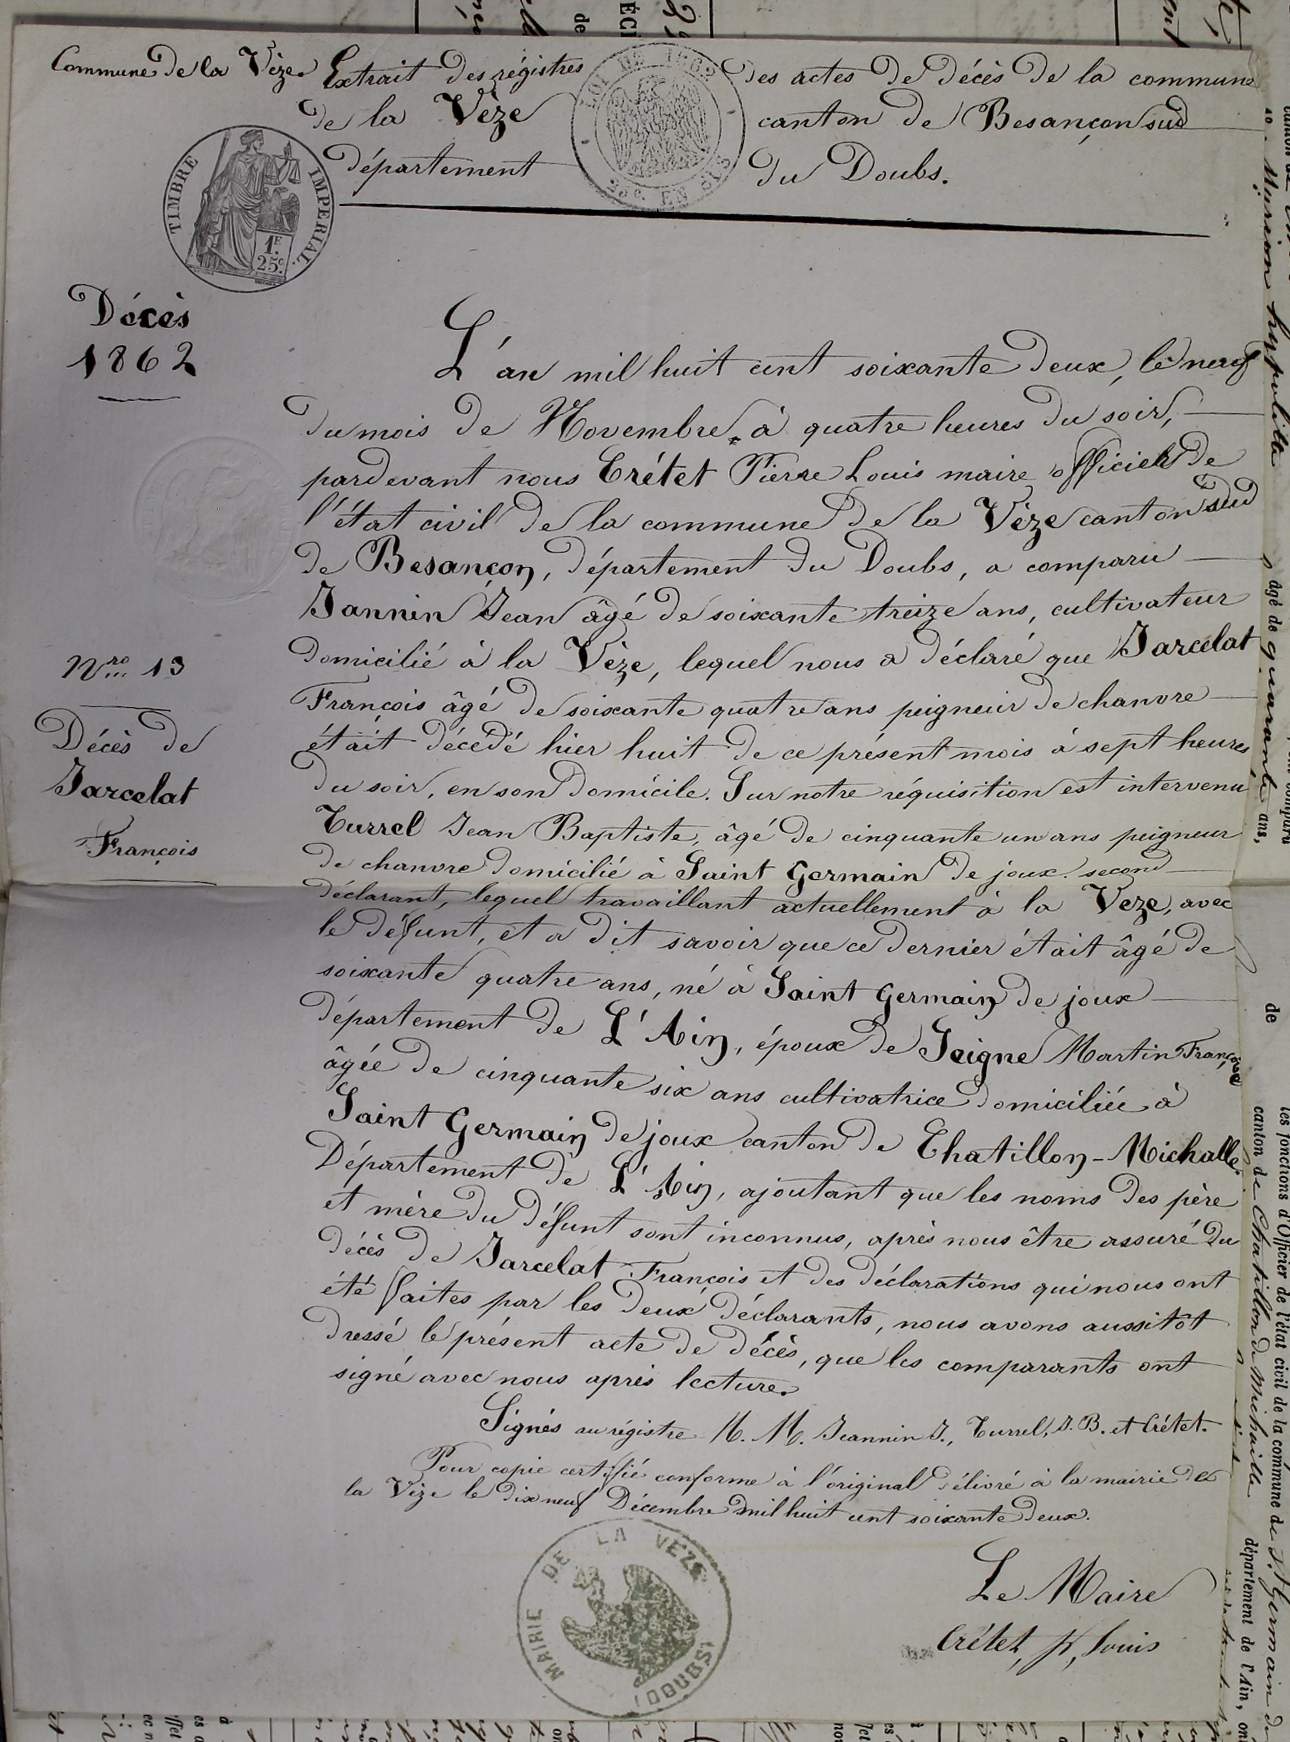 Commune de la Vèze. Extrait des régistres des actes de décès de la commune
de la Vèze canton de Besançon sud
département du Doubs.
LOI DE 1862
EN SUS
TIMBRE IMPERIAL.
1F. 25c.
Décès
1862
L'an mil huit cent soixante deux, le neuf
du mois de Novembre, à quatre heures du soir,
pardevant nous Crétet Pierre Louis maire officier de
l'état civil de la commune de la Vèze canton sud
de Besançon, département du Doubs, a comparu
Jannin Jean âgé de soixante treize ans, cultivateur
Nro 13
domicilié à la Vèze, lequel nous a déclaré que Jarcelat
François âgé de soixante quatre ans peigneur de chanvre
Décès de
Jarcelat
François
était décédé hier huit de ce présent mois à sept heures
du soir, en son domicile. Sur notre réquisition est intervenu
Turrel Jean Baptiste, âgé de cinquante un ans peigneur
de chanvre domicilié à Saint Germain de joux second
déclarant, lequel travaillant actuellement à la Veze, avec
le défunt, et a dit savoir que ce dernier était âgé de
soixante quatre ans, né à Saint Germain de joux
département de L'Ain, époux de Seigne Martin Françoise
âgée de cinquante six ans cultivatrice domiciliée à
Saint Germain de joux canton de Chatillon-Michalle
Département de L'Ain, ajoutant que les noms des père
et mère du défunt sont inconnus, après nous être assuré du
décès de Jarcelat François et des déclarations qui nous ont
été faites par les deux déclarants, nous avons aussitôt
dressé le présent acte de décès, que les comparants ont
signé avec nous après lecture.
Signés au régistre M. M. Jeannin J., Turrel, J. B. et Crétet.
Pour copie certifié conforme à l'original délivré à la mairie de
la Vèze le dix neuf Décembre mil huit cent soixante deux.
MAIRIE DE LA VÈZE
(DOUBS)
Le Maire
Crétet, p, Louis
hypolite
âgé de quarante ans,
comparu
de
les fonctions d'Officier de l'état civil de la commune de St Germain de
canton de Chatillon de michaille
département de l'Ain,